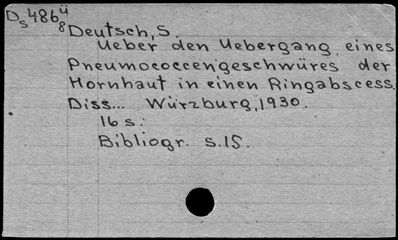 Ds486u
8 Deutsch, S.
Ueber den Uebergang eines
Pneumococcengeschwüres der
Hornhaut in einen Ringabscess.
Diss... Würzburg, 1930.
16 s.
Bibliogr. s.15.